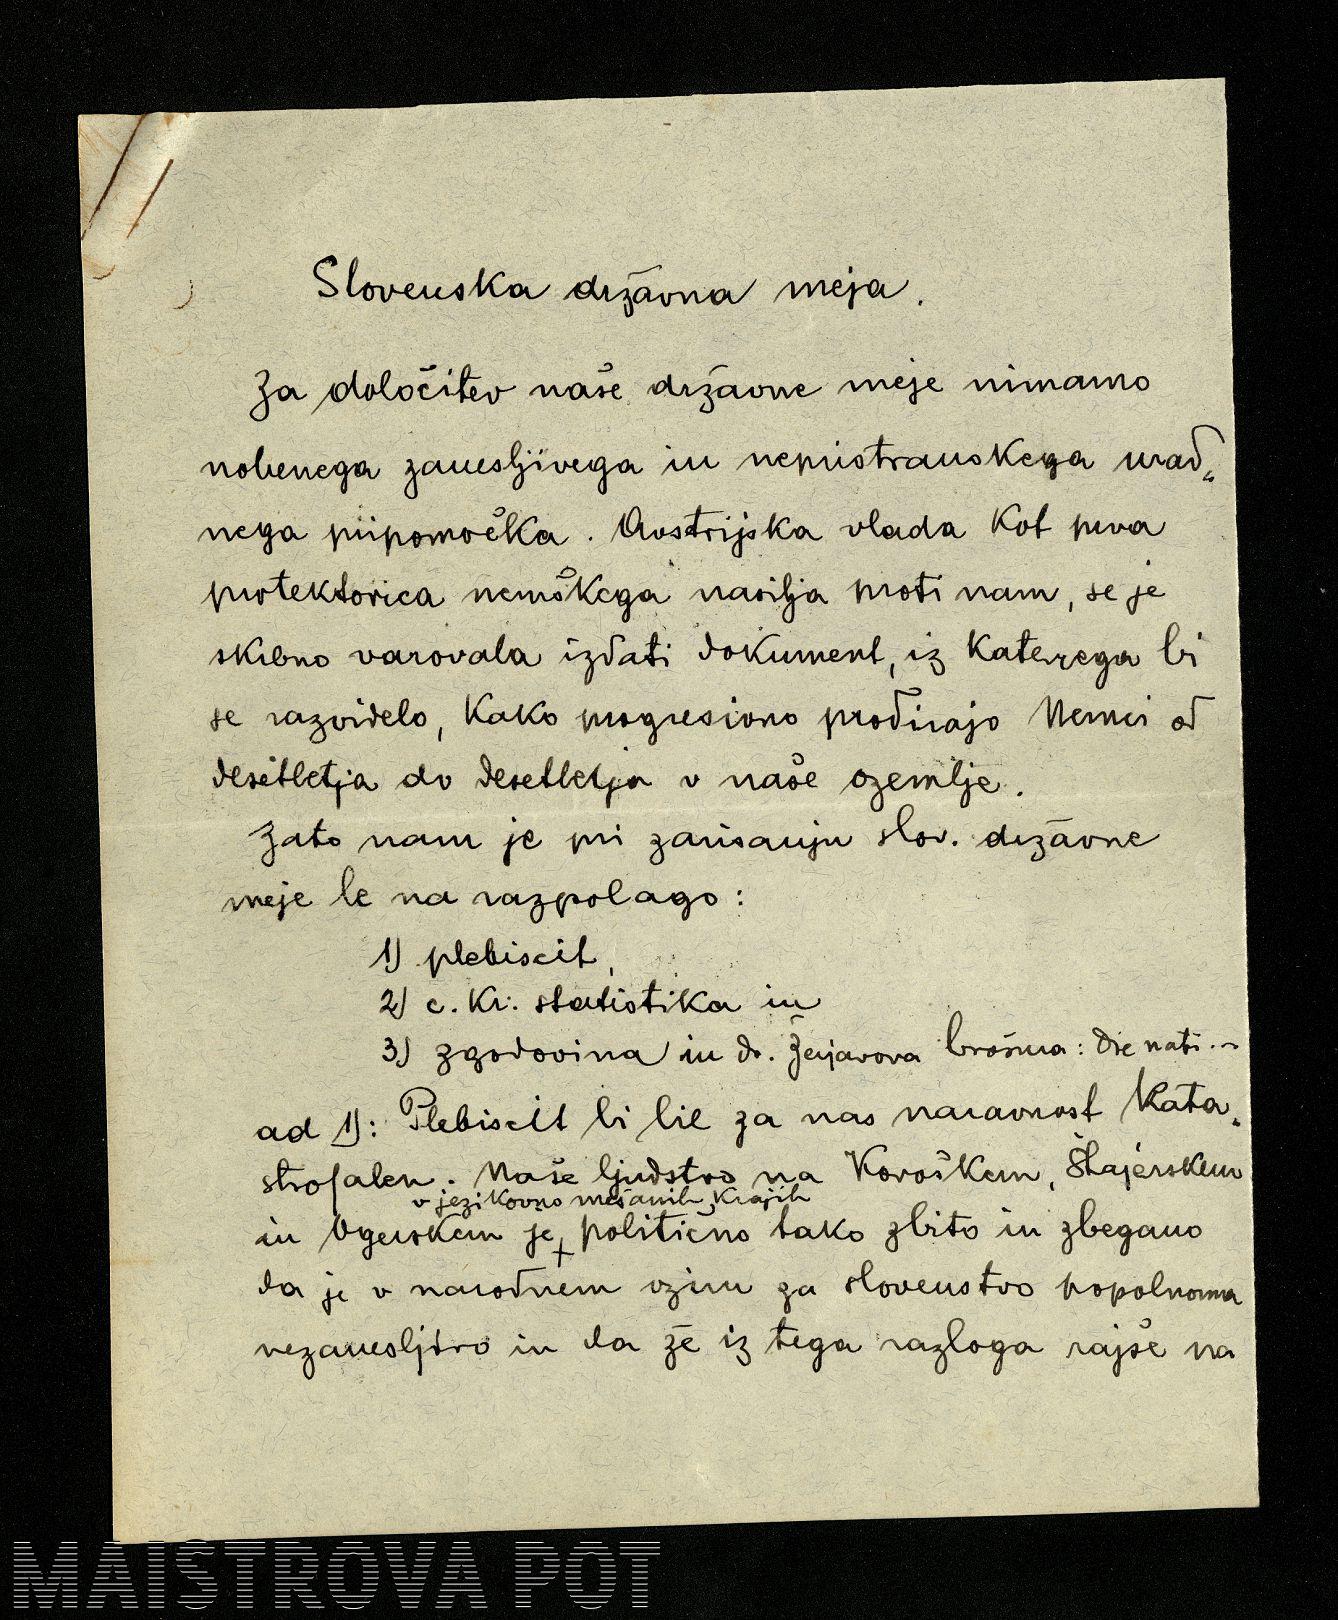 Slovenska državna meja.
Za določitev naše državne meje nimamo
nobenega zanesljivega in nepristranskega urad„
nega pripomočka. Avstrijska vlada kot prva
protektorica nemškega nasilja proti nam, se je
skrbno varovala izdati dokument, iz katerega bi
se razvidelo, kako progresivno prodirajo Nemci od
desetletja do desetletja v naše ozemlje.
Zato nam je pri zarisanju slov. državne
meje le na razpolago:
1) plebiscit,
2) c. kr. statistika in
3) zgodovina in dr. Žerjavova brošura: Die nati...
ad 1): Plebiscit bi bil za nas naravnost kata„
strofalen. Naše ljudstvo na Koroškem, Štajerskem
v jezikovno mešanih krajih
in Ogerskem je + politično tako zbito in zbegano
da je v narodnem oziru za slovenstvo popolnoma
nezanesljivo in da že iz tega razloga rajše na
MAISTROVA POT